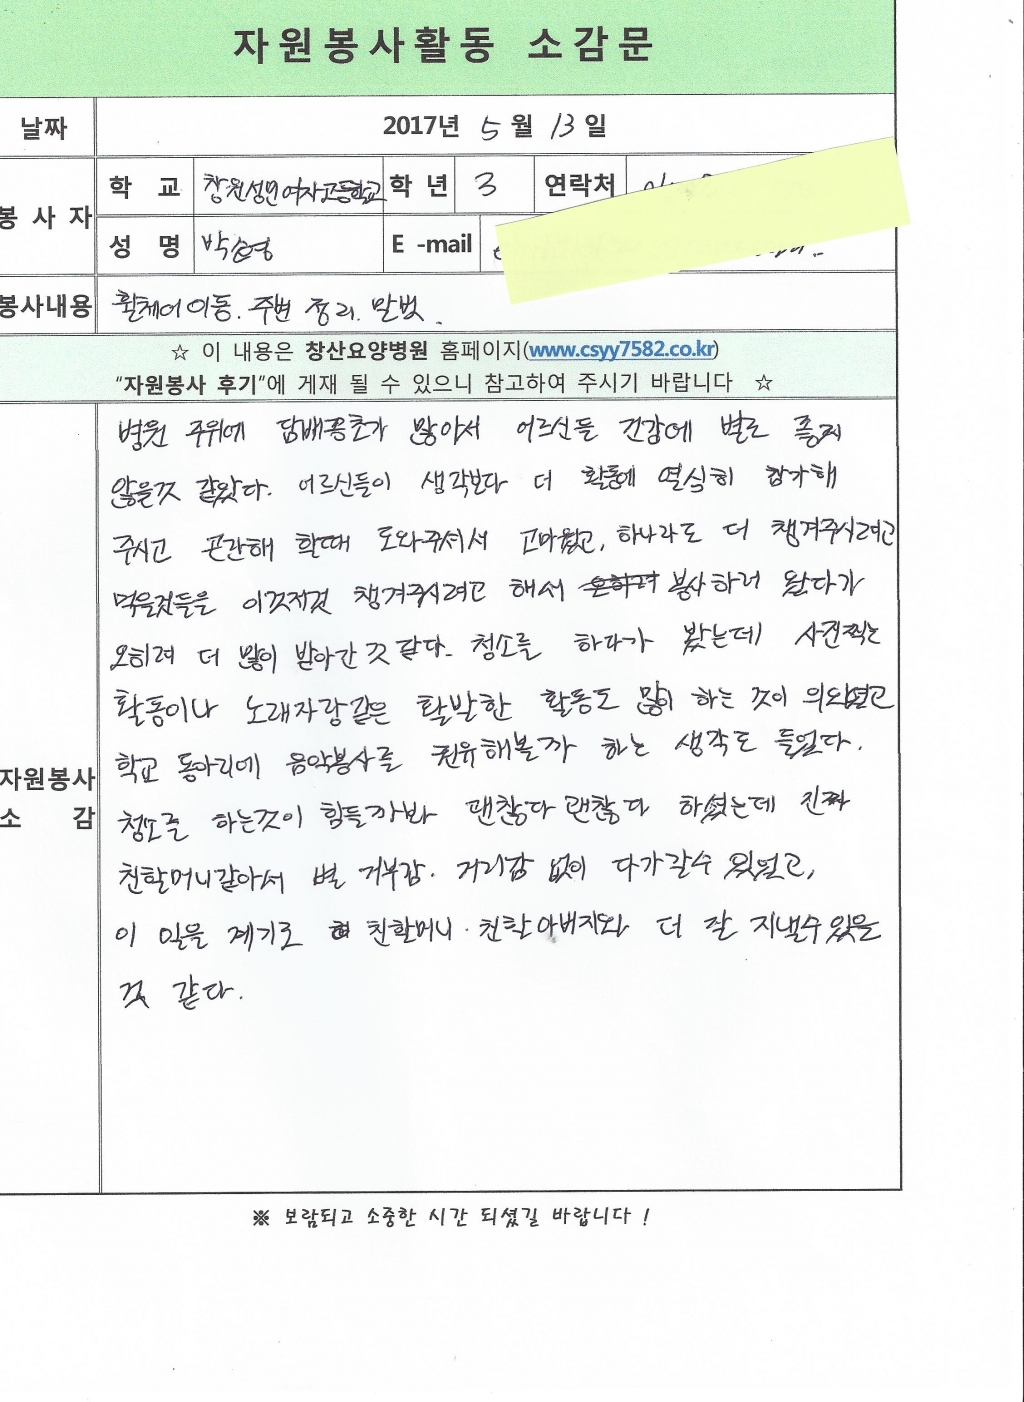 자원봉사활동 소감문
날짜 2017년 5월 13일
봉사자 학 교 창원성민여자고등학교 학 년 3 연락처
성 명 E -mail
봉사내용 휠체어이동. 주변 정리. 말벗.
☆ 이 내용은 창산요양병원 홈페이지(www.csyy7582.co.kr)
"자원봉사 후기"에 게재 될 수 있으니 참고하여 주시기 바랍니다 ☆
병원 주위에 담배꽁초가 많아서 어르신들 건강에 별로 좋지
않을것 같았다. 어르신들이 생각보다 더 활동에 열심히 참가해
주시고 곤란해 할때 도와주셔서 고마웠고, 하나라도 더 챙겨주시려고
먹을것들을 이것저것 챙겨주시려고 해서 봉사하러 왔다가
오히려 더 많이 받아간 것 같다. 청소를 하다가 봤는데 사진찍는
활동이나 노래자랑같은 활발한 활동도 많이 하는 것이 의외였고
학교 동아리에 음악봉사를 권유해볼까 하는 생각도 들었다.
청소를 하는것이 힘들까봐 괜찮다 괜찮다 하셨는데 진짜
친할머니같아서 별 거부감. 거리감 없이 다가갈수 있었고,
이 일을 계기로 친할머니. 친할아버지와 더 잘 지낼수있을
것 같다.
자원봉사
소 감
※ 보람되고 소중한 시간 되셨길 바랍니다 !